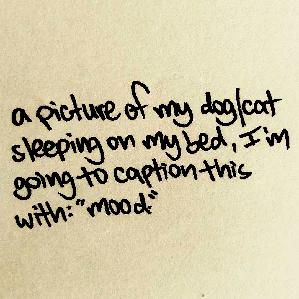 a picture of my dog/cat
sleeping on my bed, I'm
going to caption this
with: "mood."